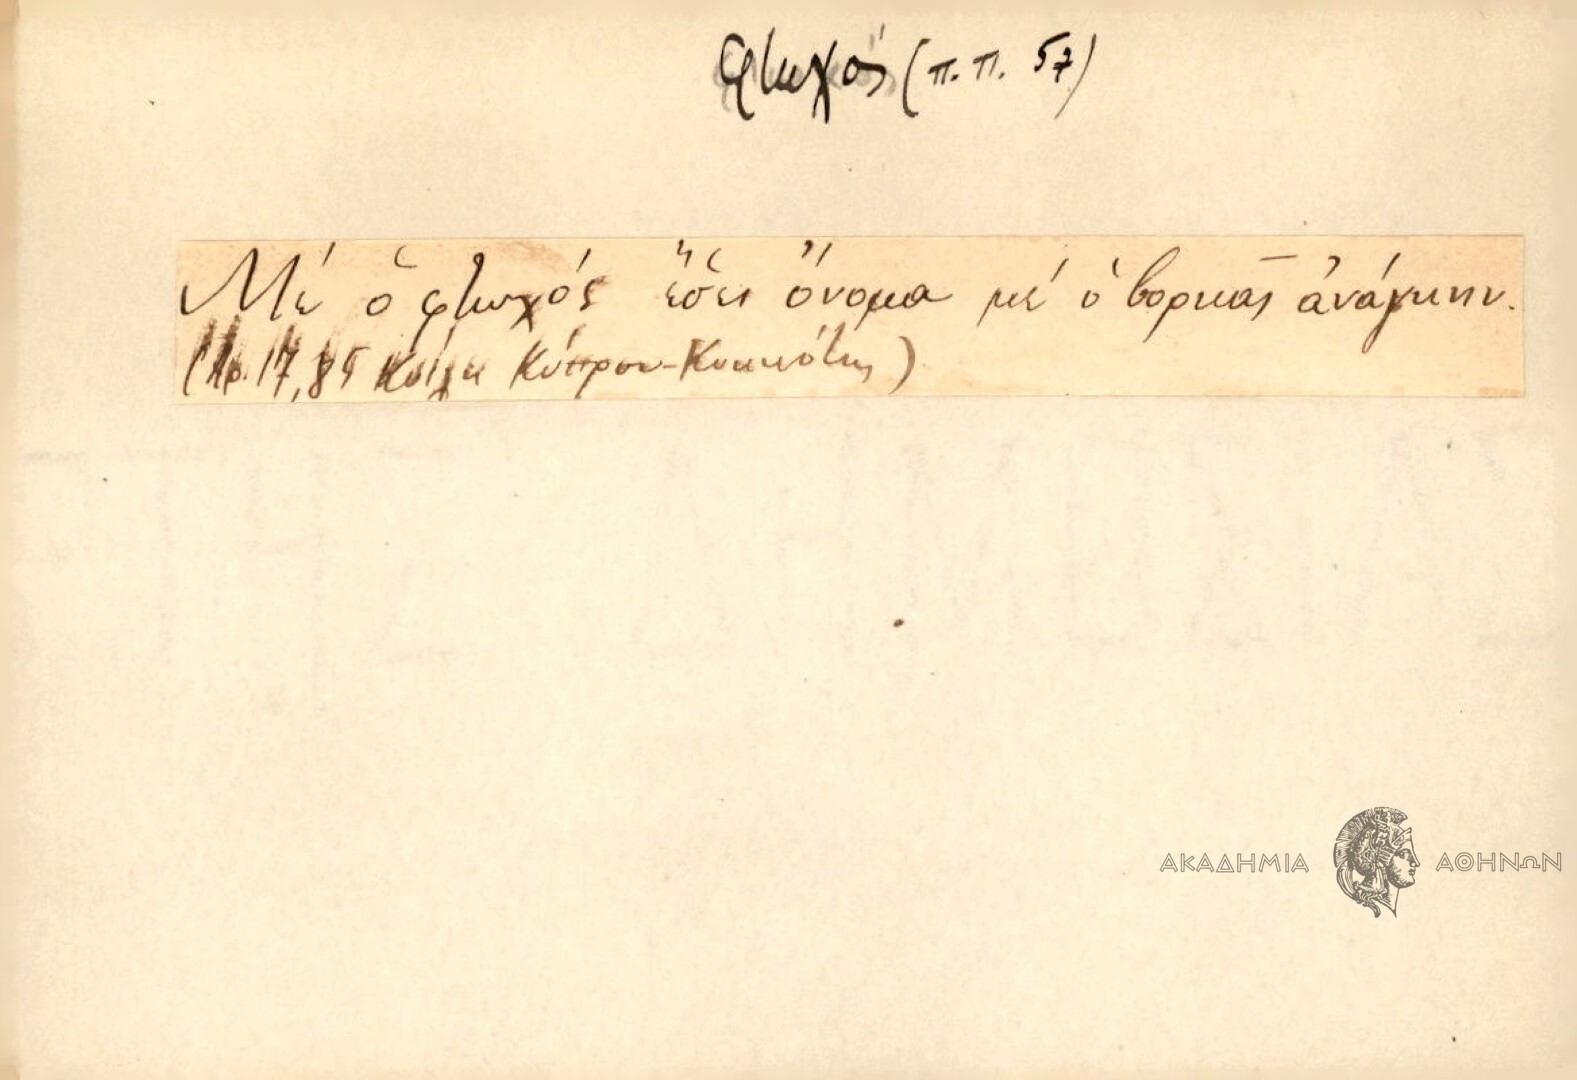 φτωχός (π.π. 57)
Μέ ὁ φτωχός ἔσει ὄνομα μέ ὁ βορκᾶς ἀνάγκην.
17, 85 Κοίλη Κύπρου-Κυκκώτης)
ΑΚΑΔΗΜΙΑ ΑΘΗΝΩΝ